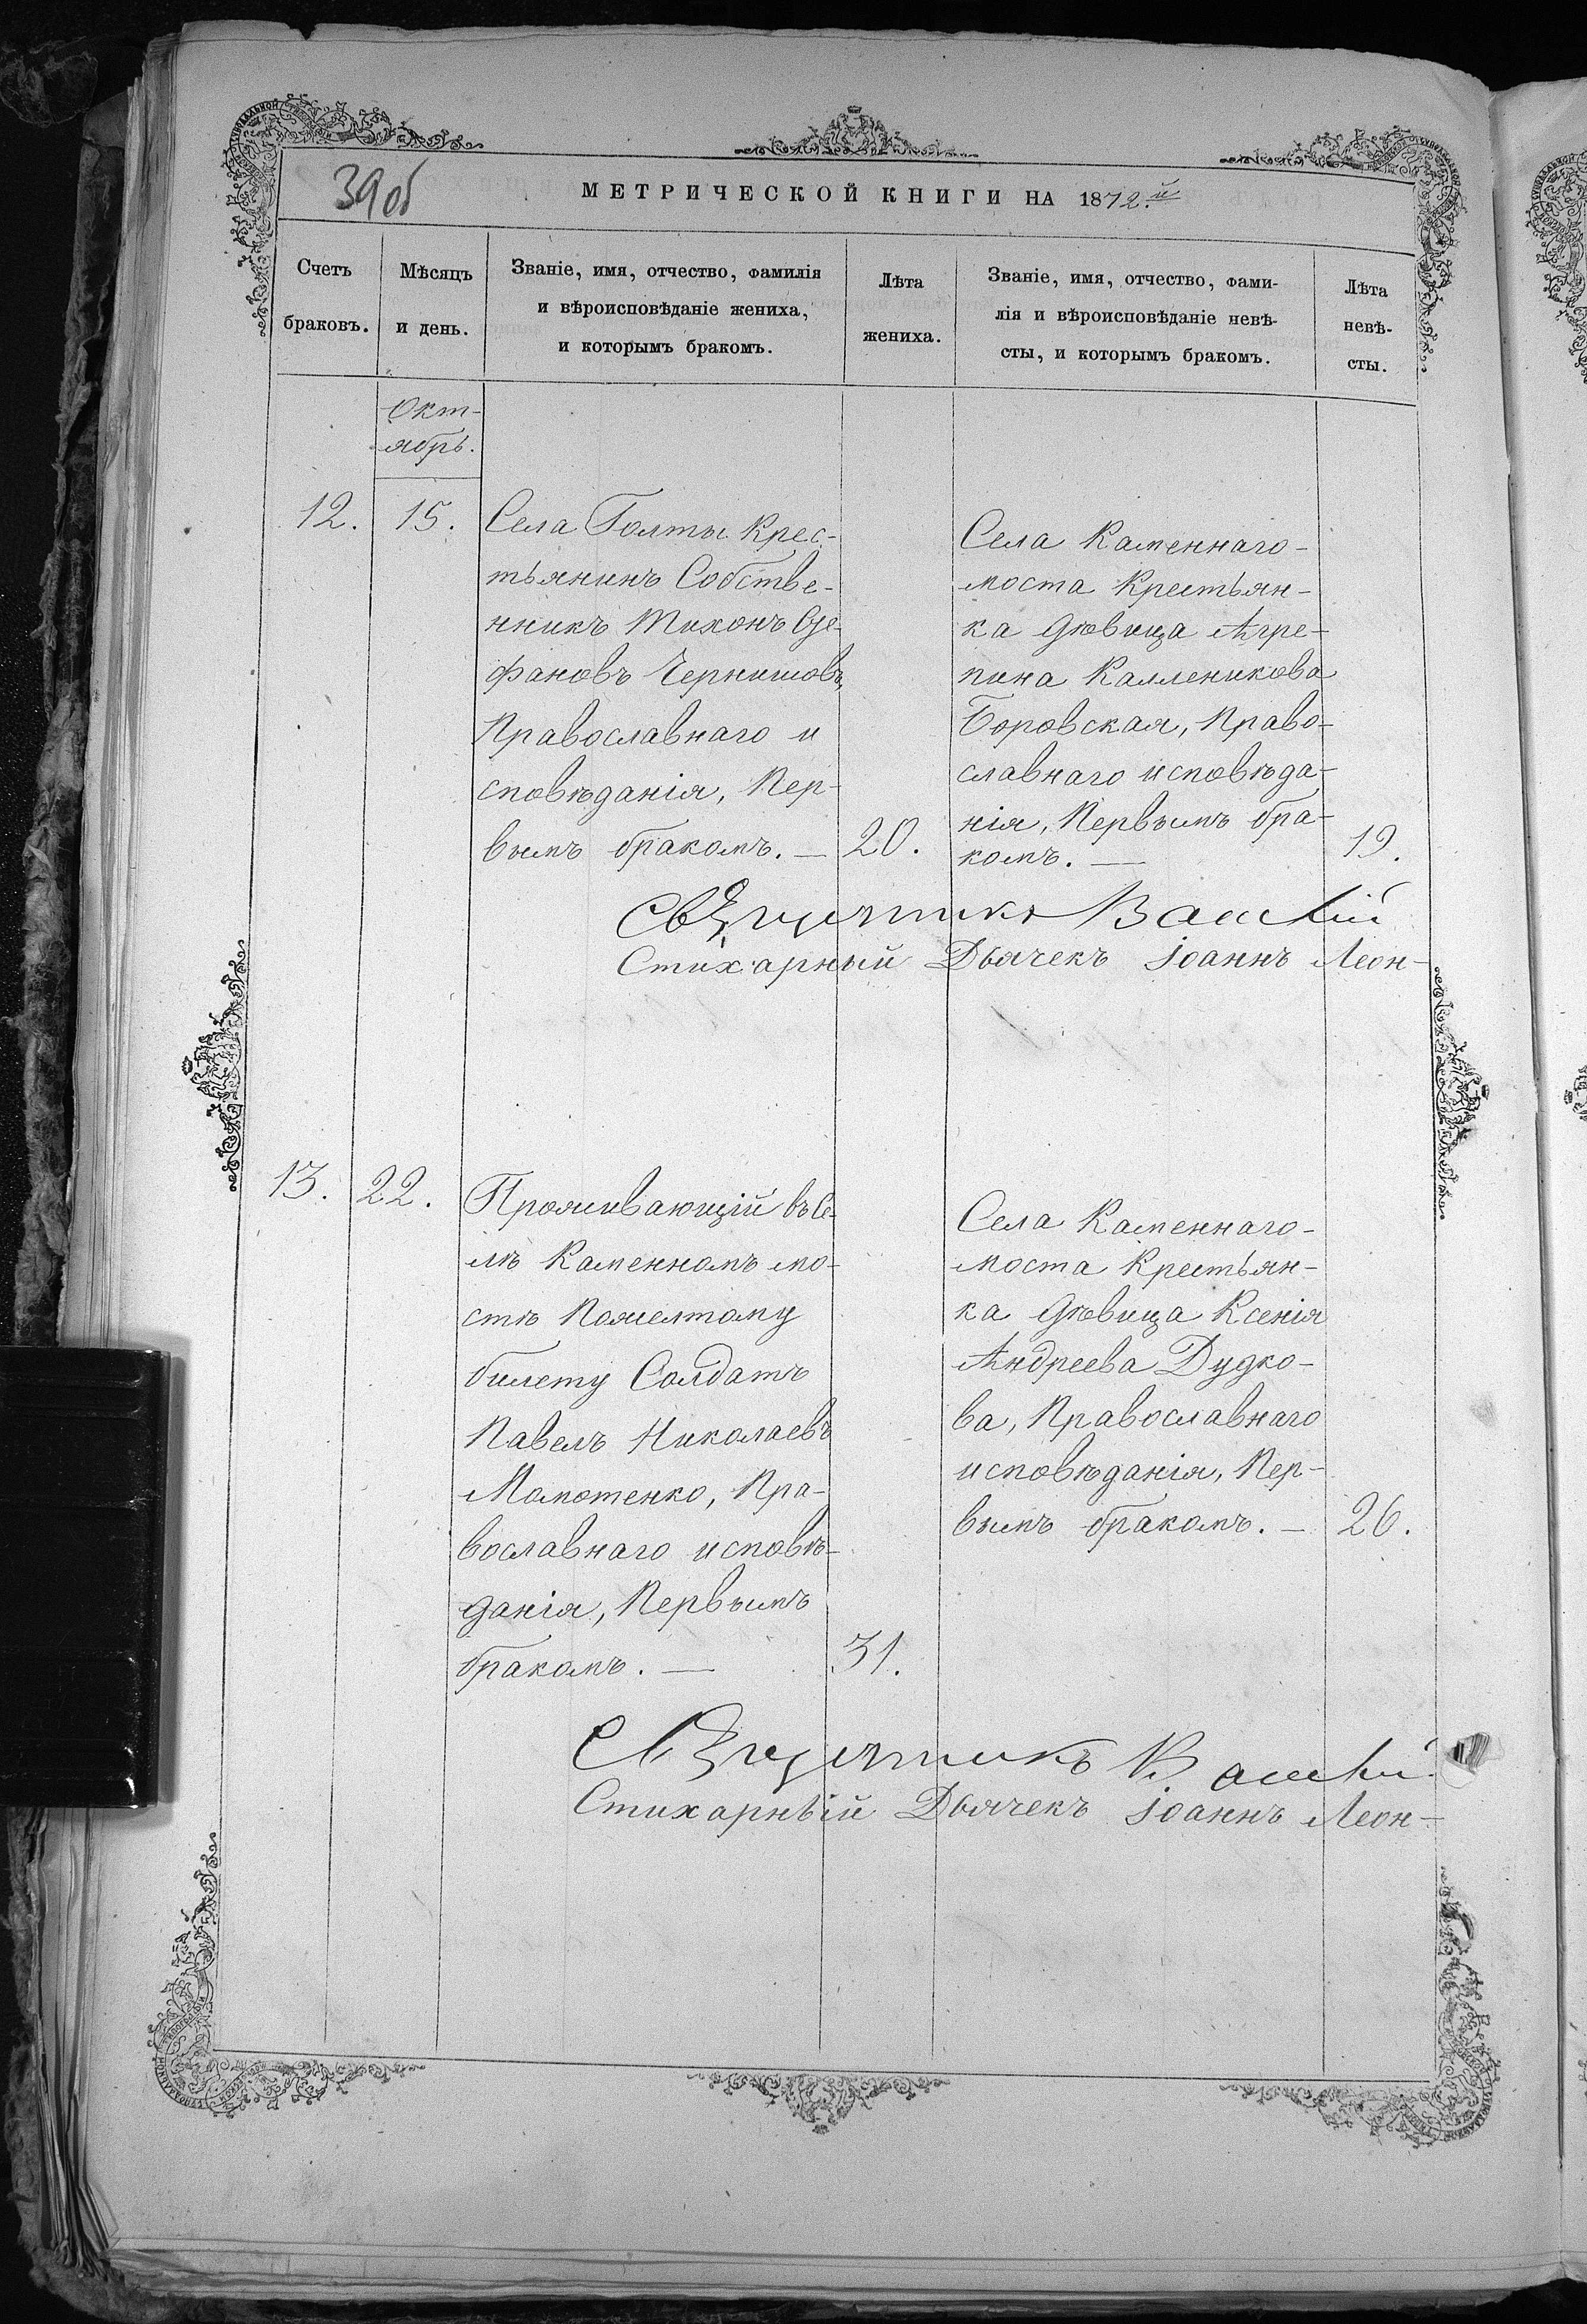 39об
МЕТРИЧЕСКОЙ КНИГИ НА 1872.й
Счетъ браковъ.
Мѣсяцъ и день.
Званіе, имя, отчество, фамилія
и вѣроисповѣданіе жениха,
и которымъ бракомъ.
Лѣта жениха.
Званіе, имя, отчество, фами-
лія и вѣроисповѣданіе невѣ-
сты, и которымъ бракомъ.
Лѣта невѣ-
сты.
Окт-
ябрь.
12.
15.
Села Голты Крес-
тьянинъ Собстве-
нникъ Тихонъ
фановъ Чернишовъ,
Православнаго и
сповѣданія, Пер-
вымъ бракомъ. —
20.
Села Каменнаго-
моста Крестьян-
ка дѣвица Агре-
пина Калленикова
Боровская, Право-
славнаго исповѣда-
нія, Первымъ бра-
комъ. —
19.
Священникъ Василій
Стихарный Дьячекъ Іоаннъ Леон-
13.
22.
Проживающій въ Се-
лѣ Каменномъ мо-
стѣ Пожелтому
билету Солдатъ
Павелъ Николаевъ
Мамотенко, Пра-
вославнаго исповѣ-
данія, Первымъ
бракомъ. —
31.
Села Каменнаго-
моста Крестьян-
ка дѣвица Ксенія
Андреева Дудко-
ва, Православнаго
исповѣданія, Пер-
вымъ бракомъ. —
26.
Священникъ Василій
Стихарный Дьячекъ Іоаннъ Леон-